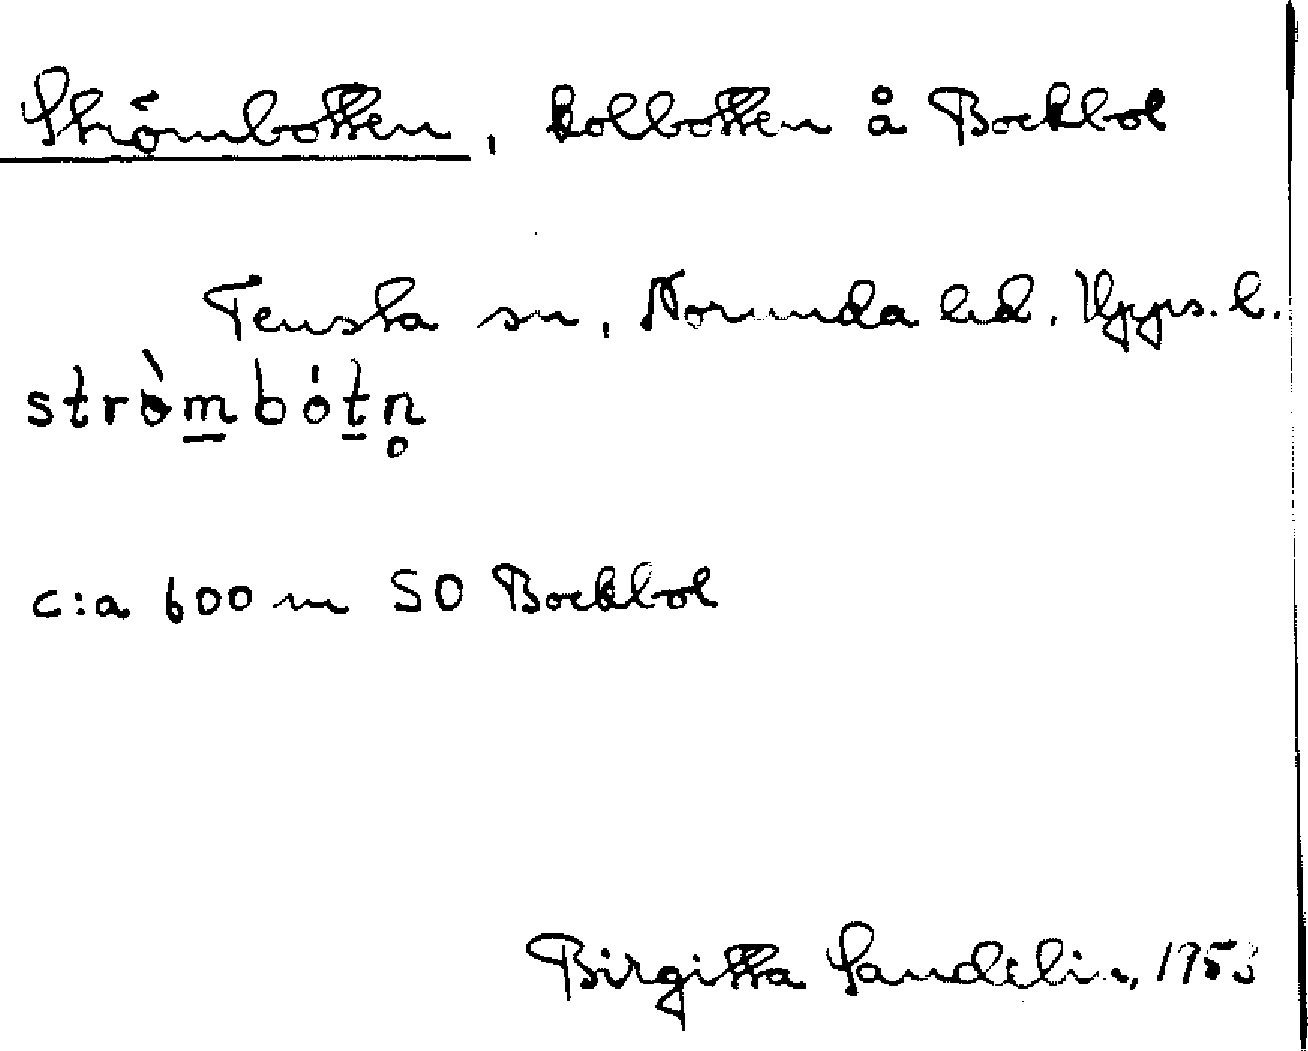 Strömbotten, kolbotten å Bockbol
Tensta sn, Norunda hd. Upps. l.
strö̀m̲bót̲n̥
c:a 600 m SO Bockbol
Birgitta Sandelin, 1953